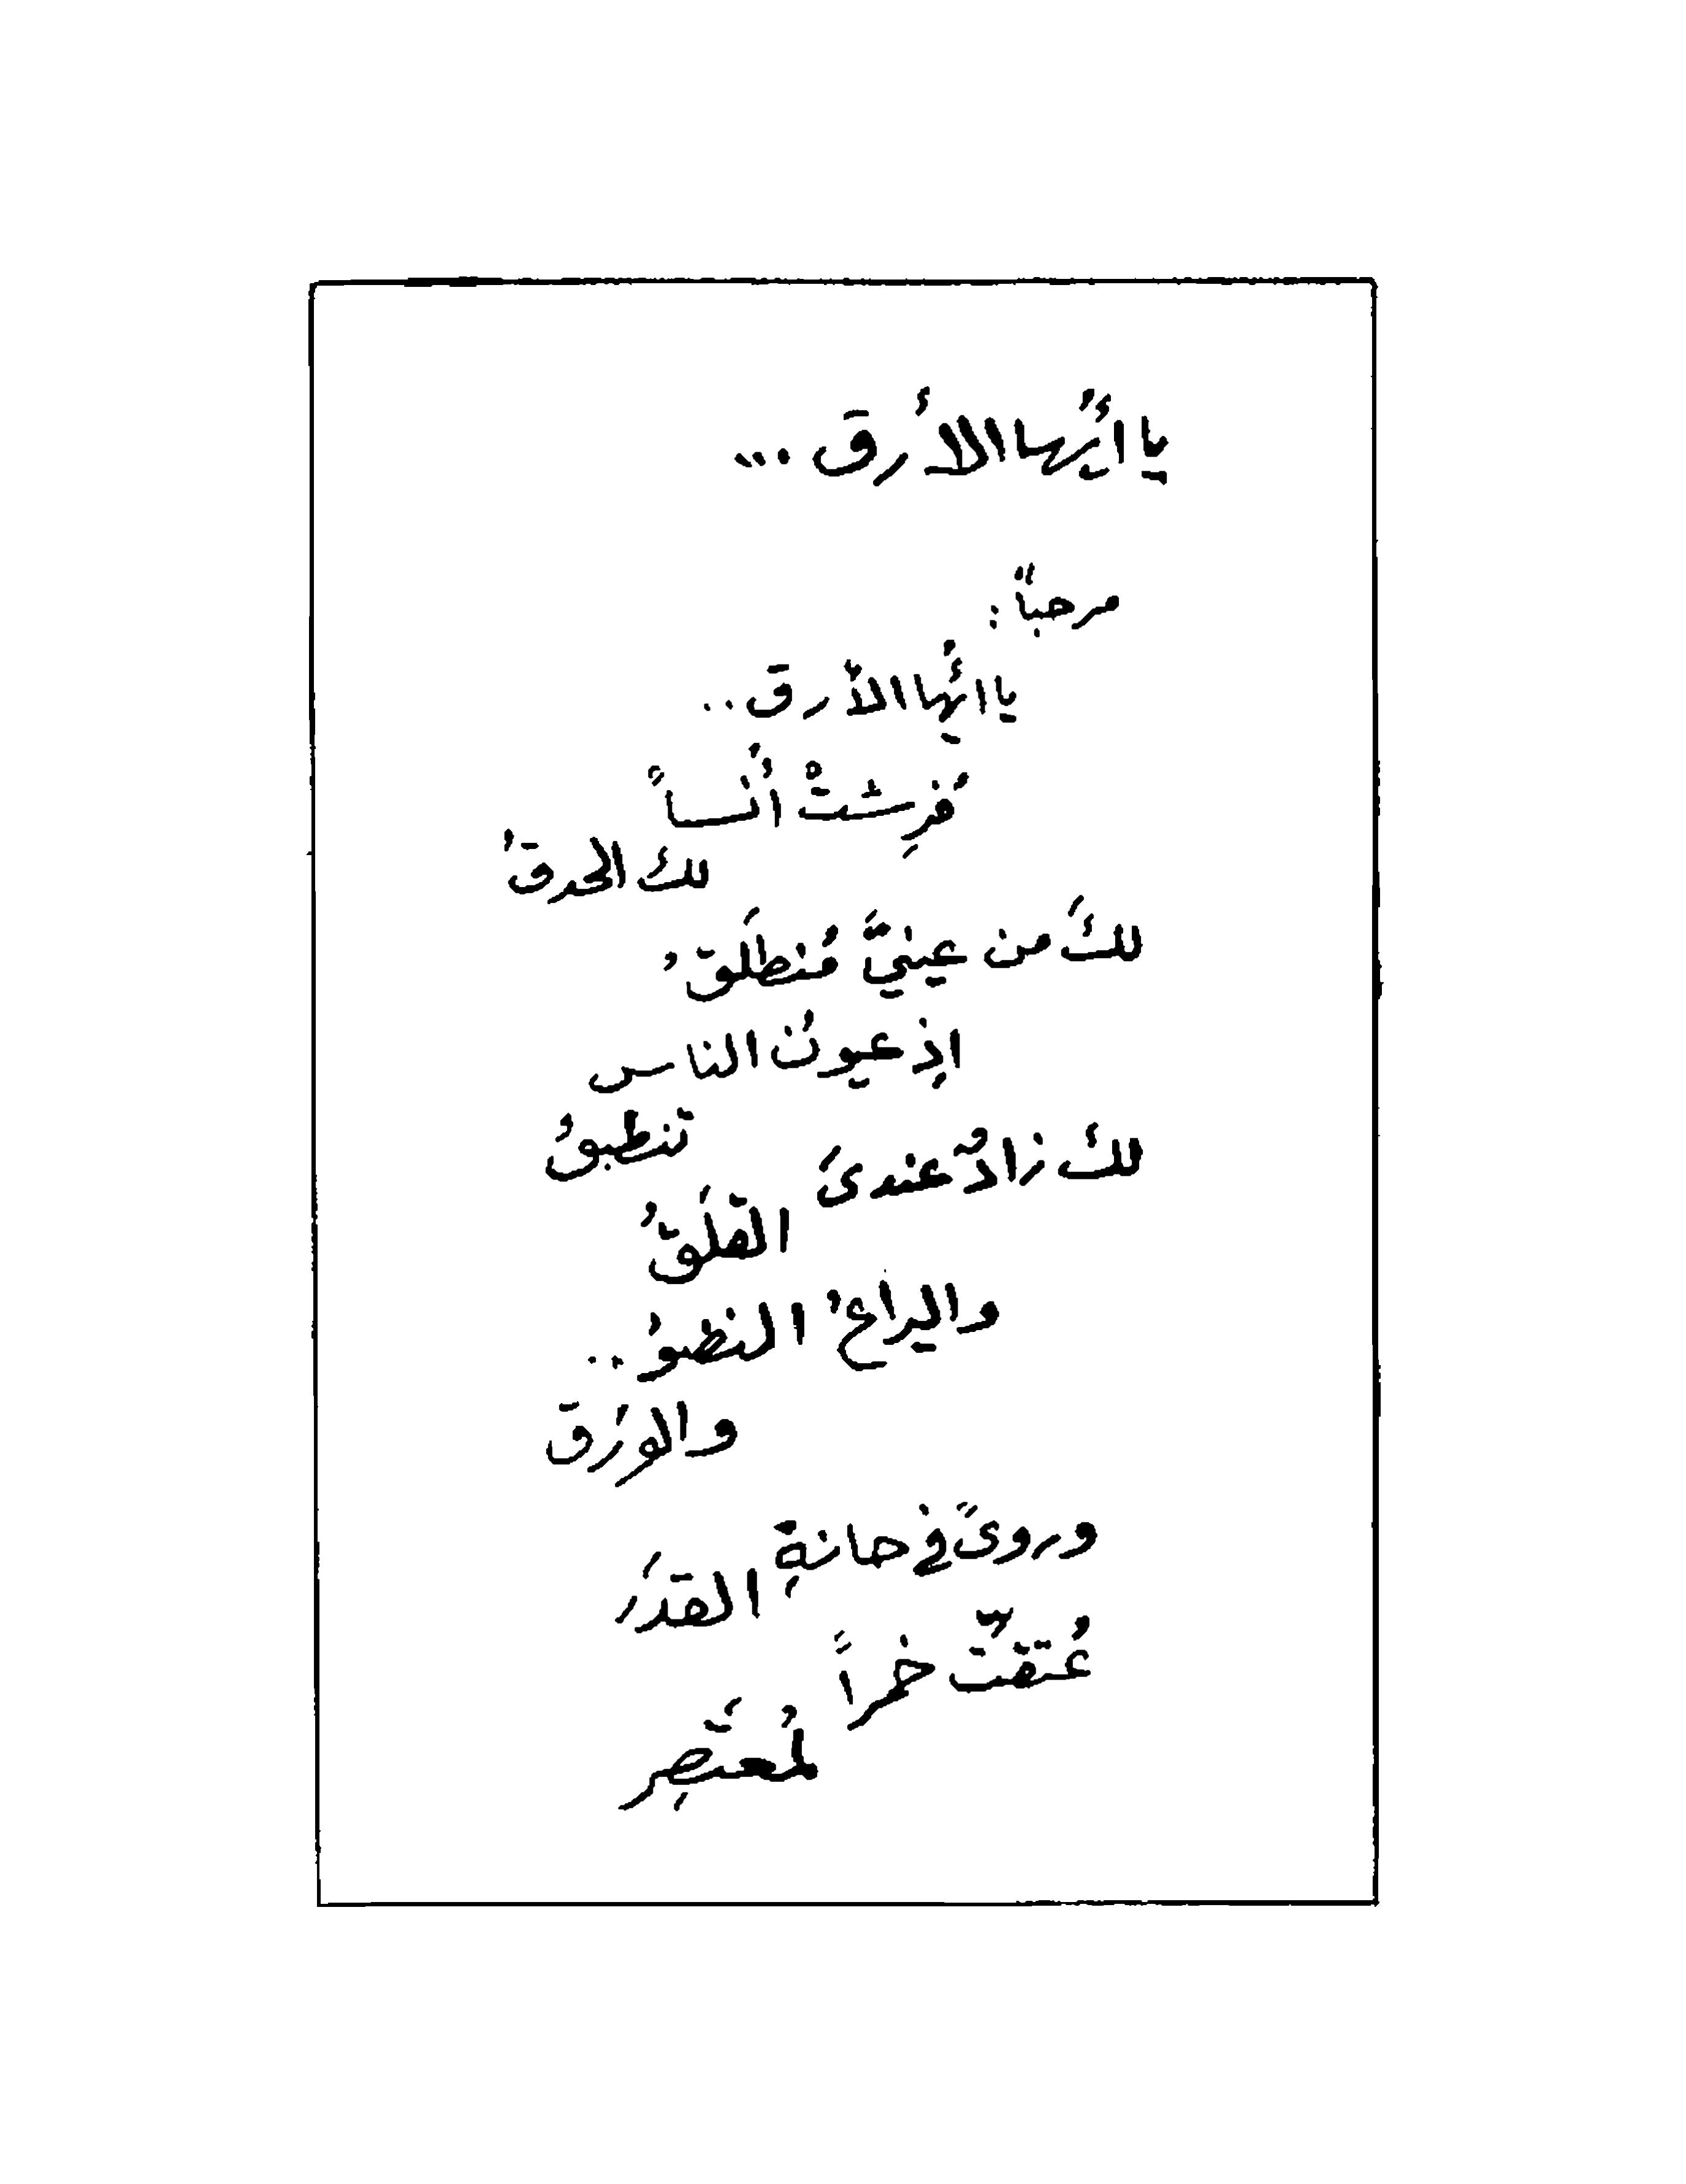 يا أيُّها الأرق ...
مرحباً :
يا أيُّها الأرق ..
فُرِشتْ أُنساً
لك الحدقُ
لكَ من عينيَّ مُنطلَقُ
اذِ عيونُ الناس
تنطبقُ
لكَ زادٌ عندىَ
القلَقُ
واليراعُ النضوُ ..
والورَق
وروىً في حانةِ
القدَر
عُتقتّ خمراً
لمُعتَصِر